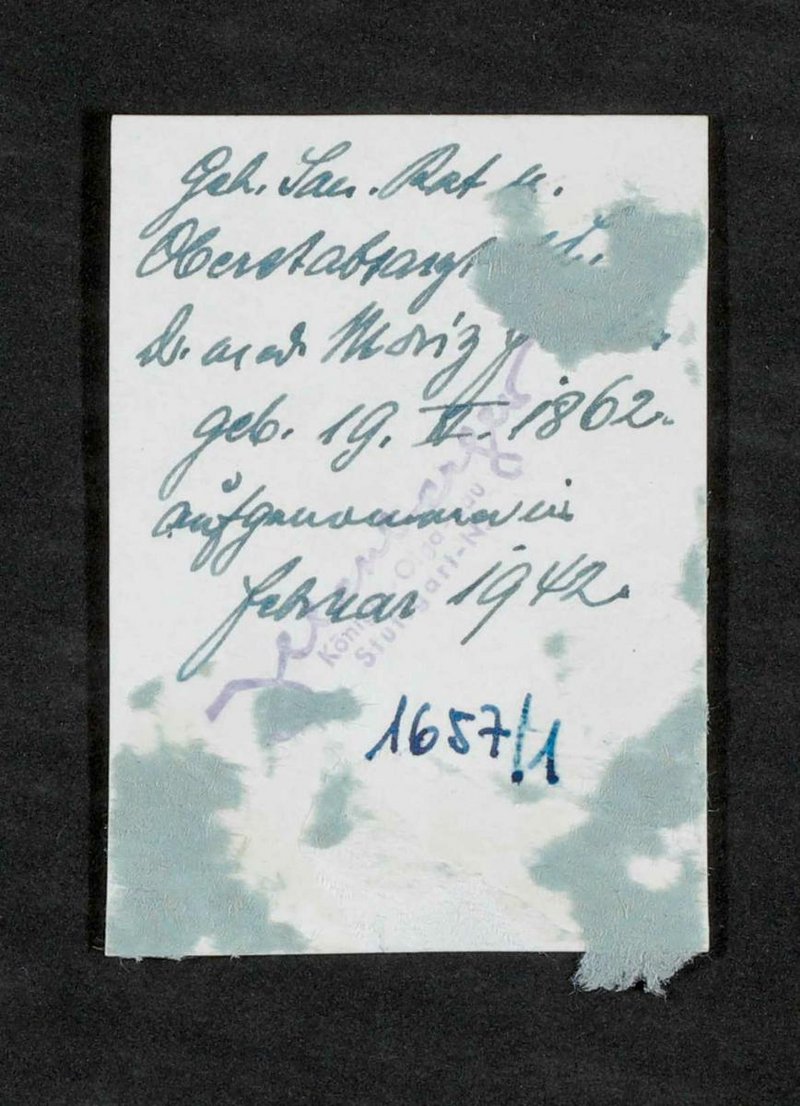 Geh. San. Rat u.
Oberstabsarzt
Dr. med. Moriz
geb. 19. V. 1862.
aufgenommen im
Februar 1942.
Stuttgart-N
1657/1